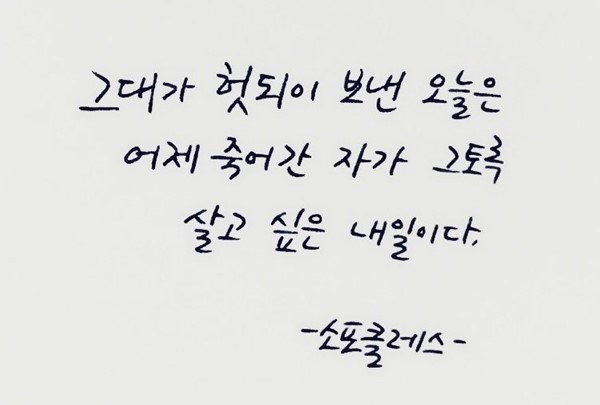 그대가 헛되이 보낸 오늘은
어제 죽어간 자가 그토록
살고 싶은 내일이다.
-소포클레스-